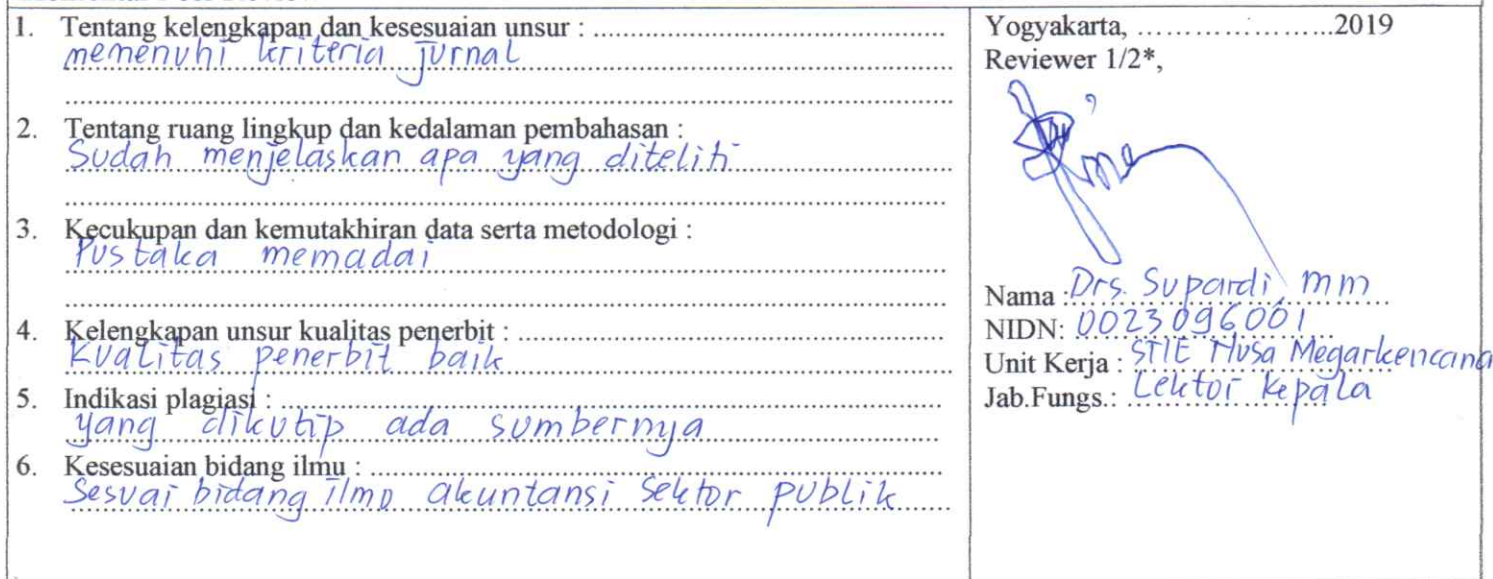 1. Tentang kelengkapan dan kesesuaian unsur : ..........
memenuhi kriteria jurnal
2. Tentang ruang lingkup dan kedalaman pembahasan :
Sudah menjelaskan apa yang diteliti
3. Kecukupan dan kemutakhiran data serta metodologi :
Pustaka memadai
4. Kelengkapan unsur kualitas penerbit : ..........
Kualitas penerbit baik
5. Indikasi plagiasi : ..........
yang dikutip ada sumbernya
6. Kesesuaian bidang ilmu : ..........
Sesuai bidang ilmu akuntansi Sektor publik
Yogyakarta, ....................2019
Reviewer 1/2*,
Nama : Drs. Supardi, mm
NIDN: 0023096001
Unit Kerja : STIE Nusa Megarkencana
Jab.Fungs.: Lektor Kepala